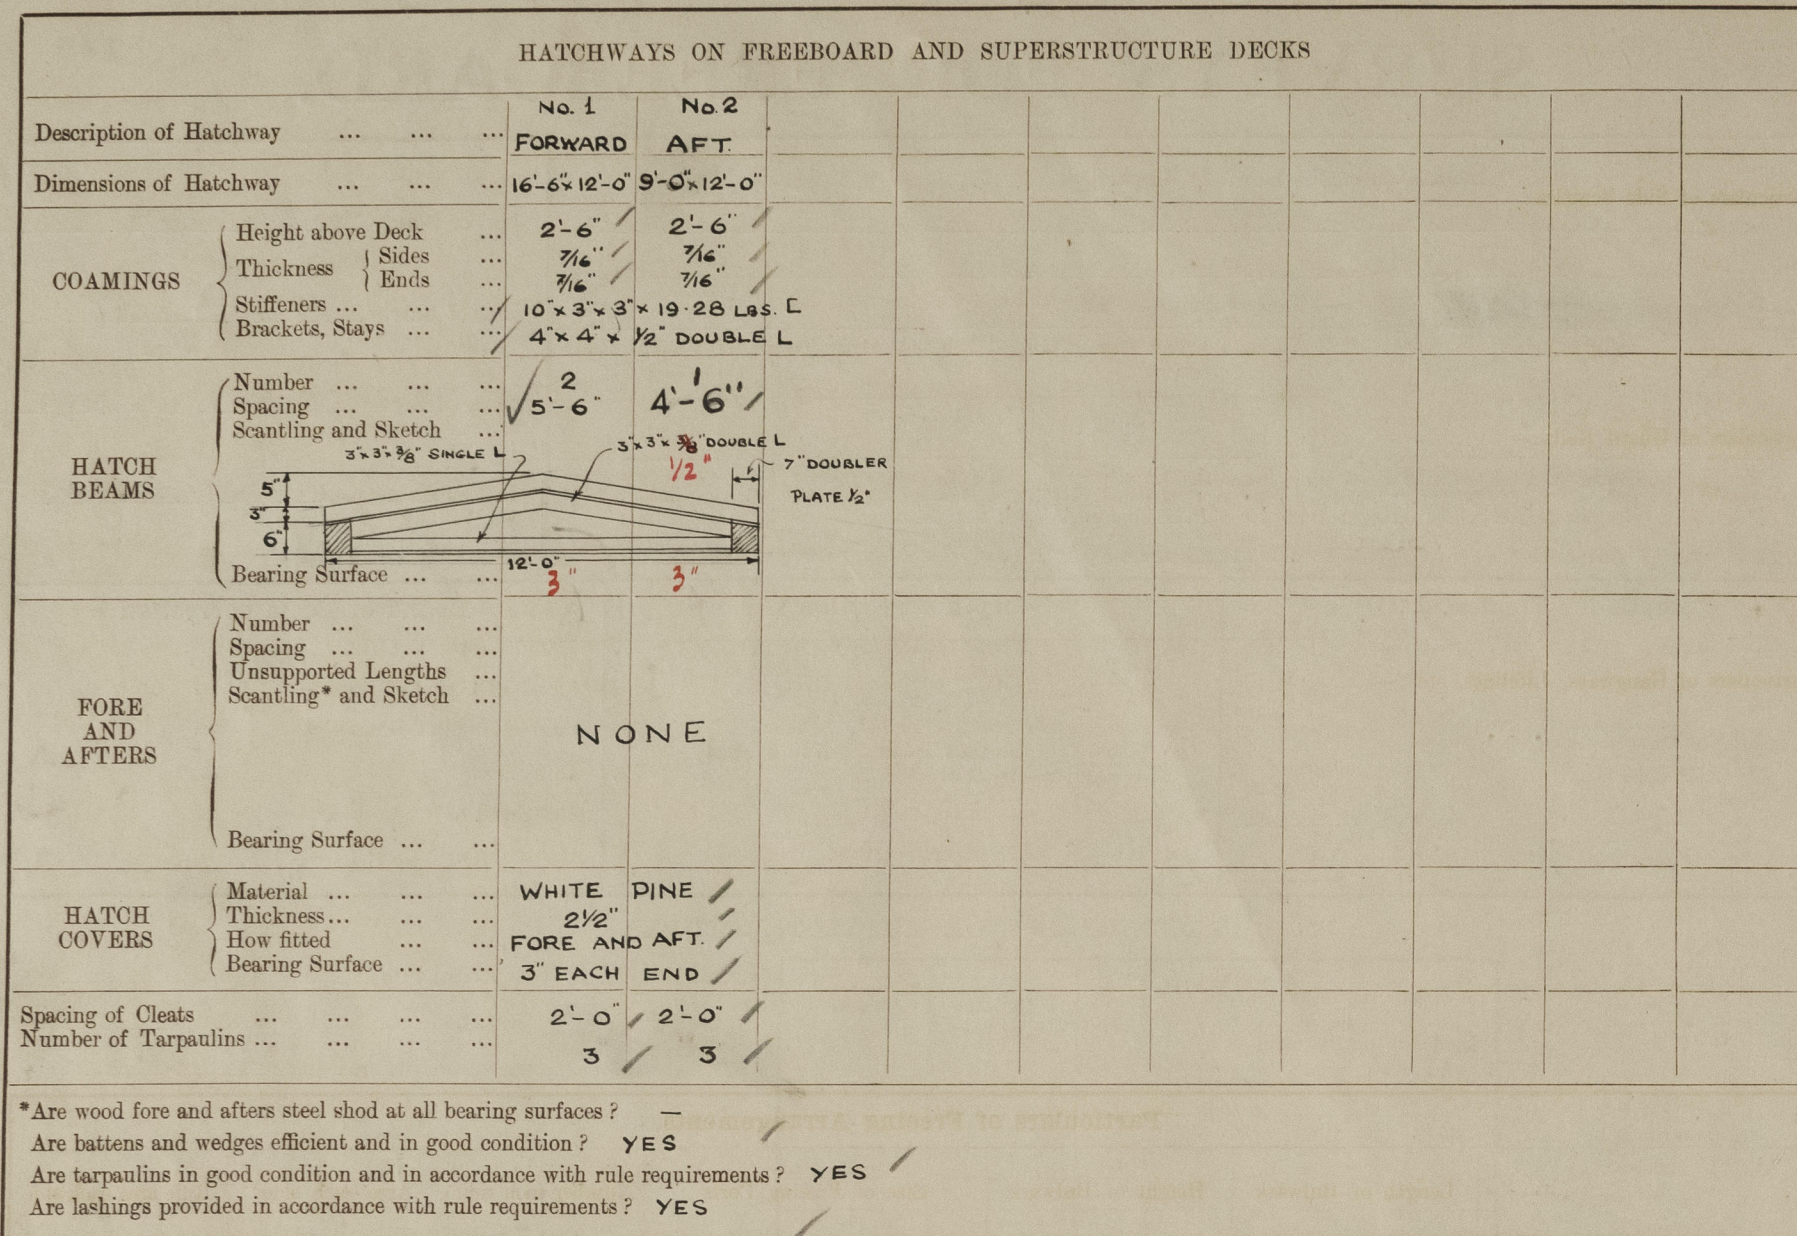 HATCHWAYS ON FREEBOARD AND SUPERSTRUCTURE DECKS
No. 1 No. 2
Description of Hatchway ... ... ... FORWARD AFT.
Dimensions of Hatchway ... ... ... 16'-6"x 12'-0" 9'-0"x 12'-0"
COAMINGS
Height above Deck ... 2'-6" 2'-6"
Thickness
Sides ... 7/16" 7/16"
Ends ... 7/16" 7/16"
Stiffeners ... ... ... 10"x 3"x 3"x 19.28 LBS. [
Brackets, Stays ... ... 4"x 4"x 1/2" DOUBLE L
HATCH BEAMS
Number ... ... ... 2 1
Spacing ... ... ... 5'-6" 4'-6"
Scantling and Sketch ...
3"x 3"x 3/8" SINGLE L
3"x 3"x 3/8" DOUBLE L
1/2"
7" DOUBLER
PLATE 1/2"
5"
3"
6"
12'-0"
Bearing Surface ... ... 3" 3"
FORE AND AFTERS
Number ... ... ...
Spacing ... ... ...
Unsupported Lengths ...
Scantling* and Sketch ...
NONE
Bearing Surface ... ...
HATCH COVERS
Material ... ... ... WHITE PINE
Thickness... ... ... 2 1/2"
How fitted ... ... FORE AND AFT.
Bearing Surface ... ... 3" EACH END
Spacing of Cleats ... ... ... ... 2'-0" 2'-0"
Number of Tarpaulins ... ... ... ... 3 3
*Are wood fore and afters steel shod at all bearing surfaces? —
Are battens and wedges efficient and in good condition? YES
Are tarpaulins in good condition and in accordance with rule requirements? YES
Are lashings provided in accordance with rule requirements? YES